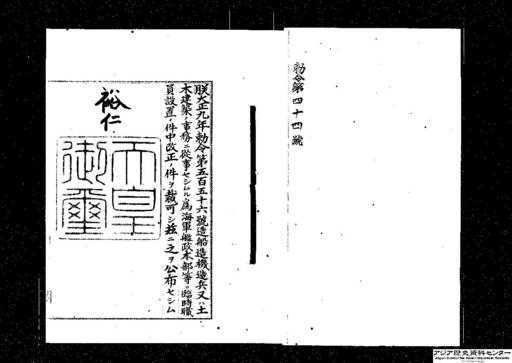 勅令第四十四號
朕大正九年勅令第五百五十六號造船造機造兵又ハ土
木建築ノ事務ニ從事セシムル爲海軍艦政本部等ニ臨時職
員設置ノ件中改正ノ件ヲ裁可シ玆ニ之ヲ公布セシム
裕仁
天皇
御璽
アジア歴史資料センター
Japan Center for Asian Historical Records